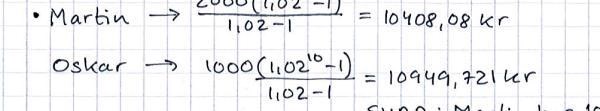 • Martin → 2000(1,02 -1) / 1,02-1 = 10408,08 kr
Oskar → 1000(1,02¹⁰-1) / 1,02-1 = 10949,721 kr